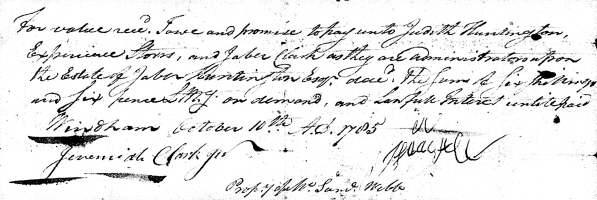 For value rec.d I owe and promise to pay unto Judith Huntington,
Experience Storrs, and Jabez Clark as they are administrators upon
the Estate of Jabez Huntington Esq.r dece.d The Sum of Six Shillings
and Six pence L.My. on demand, and Lawfull Interest untill paid
Windham October 10th A.D. 1785
Jeremiah Clark Jur
Prop.y of Mr. Saml. Webb